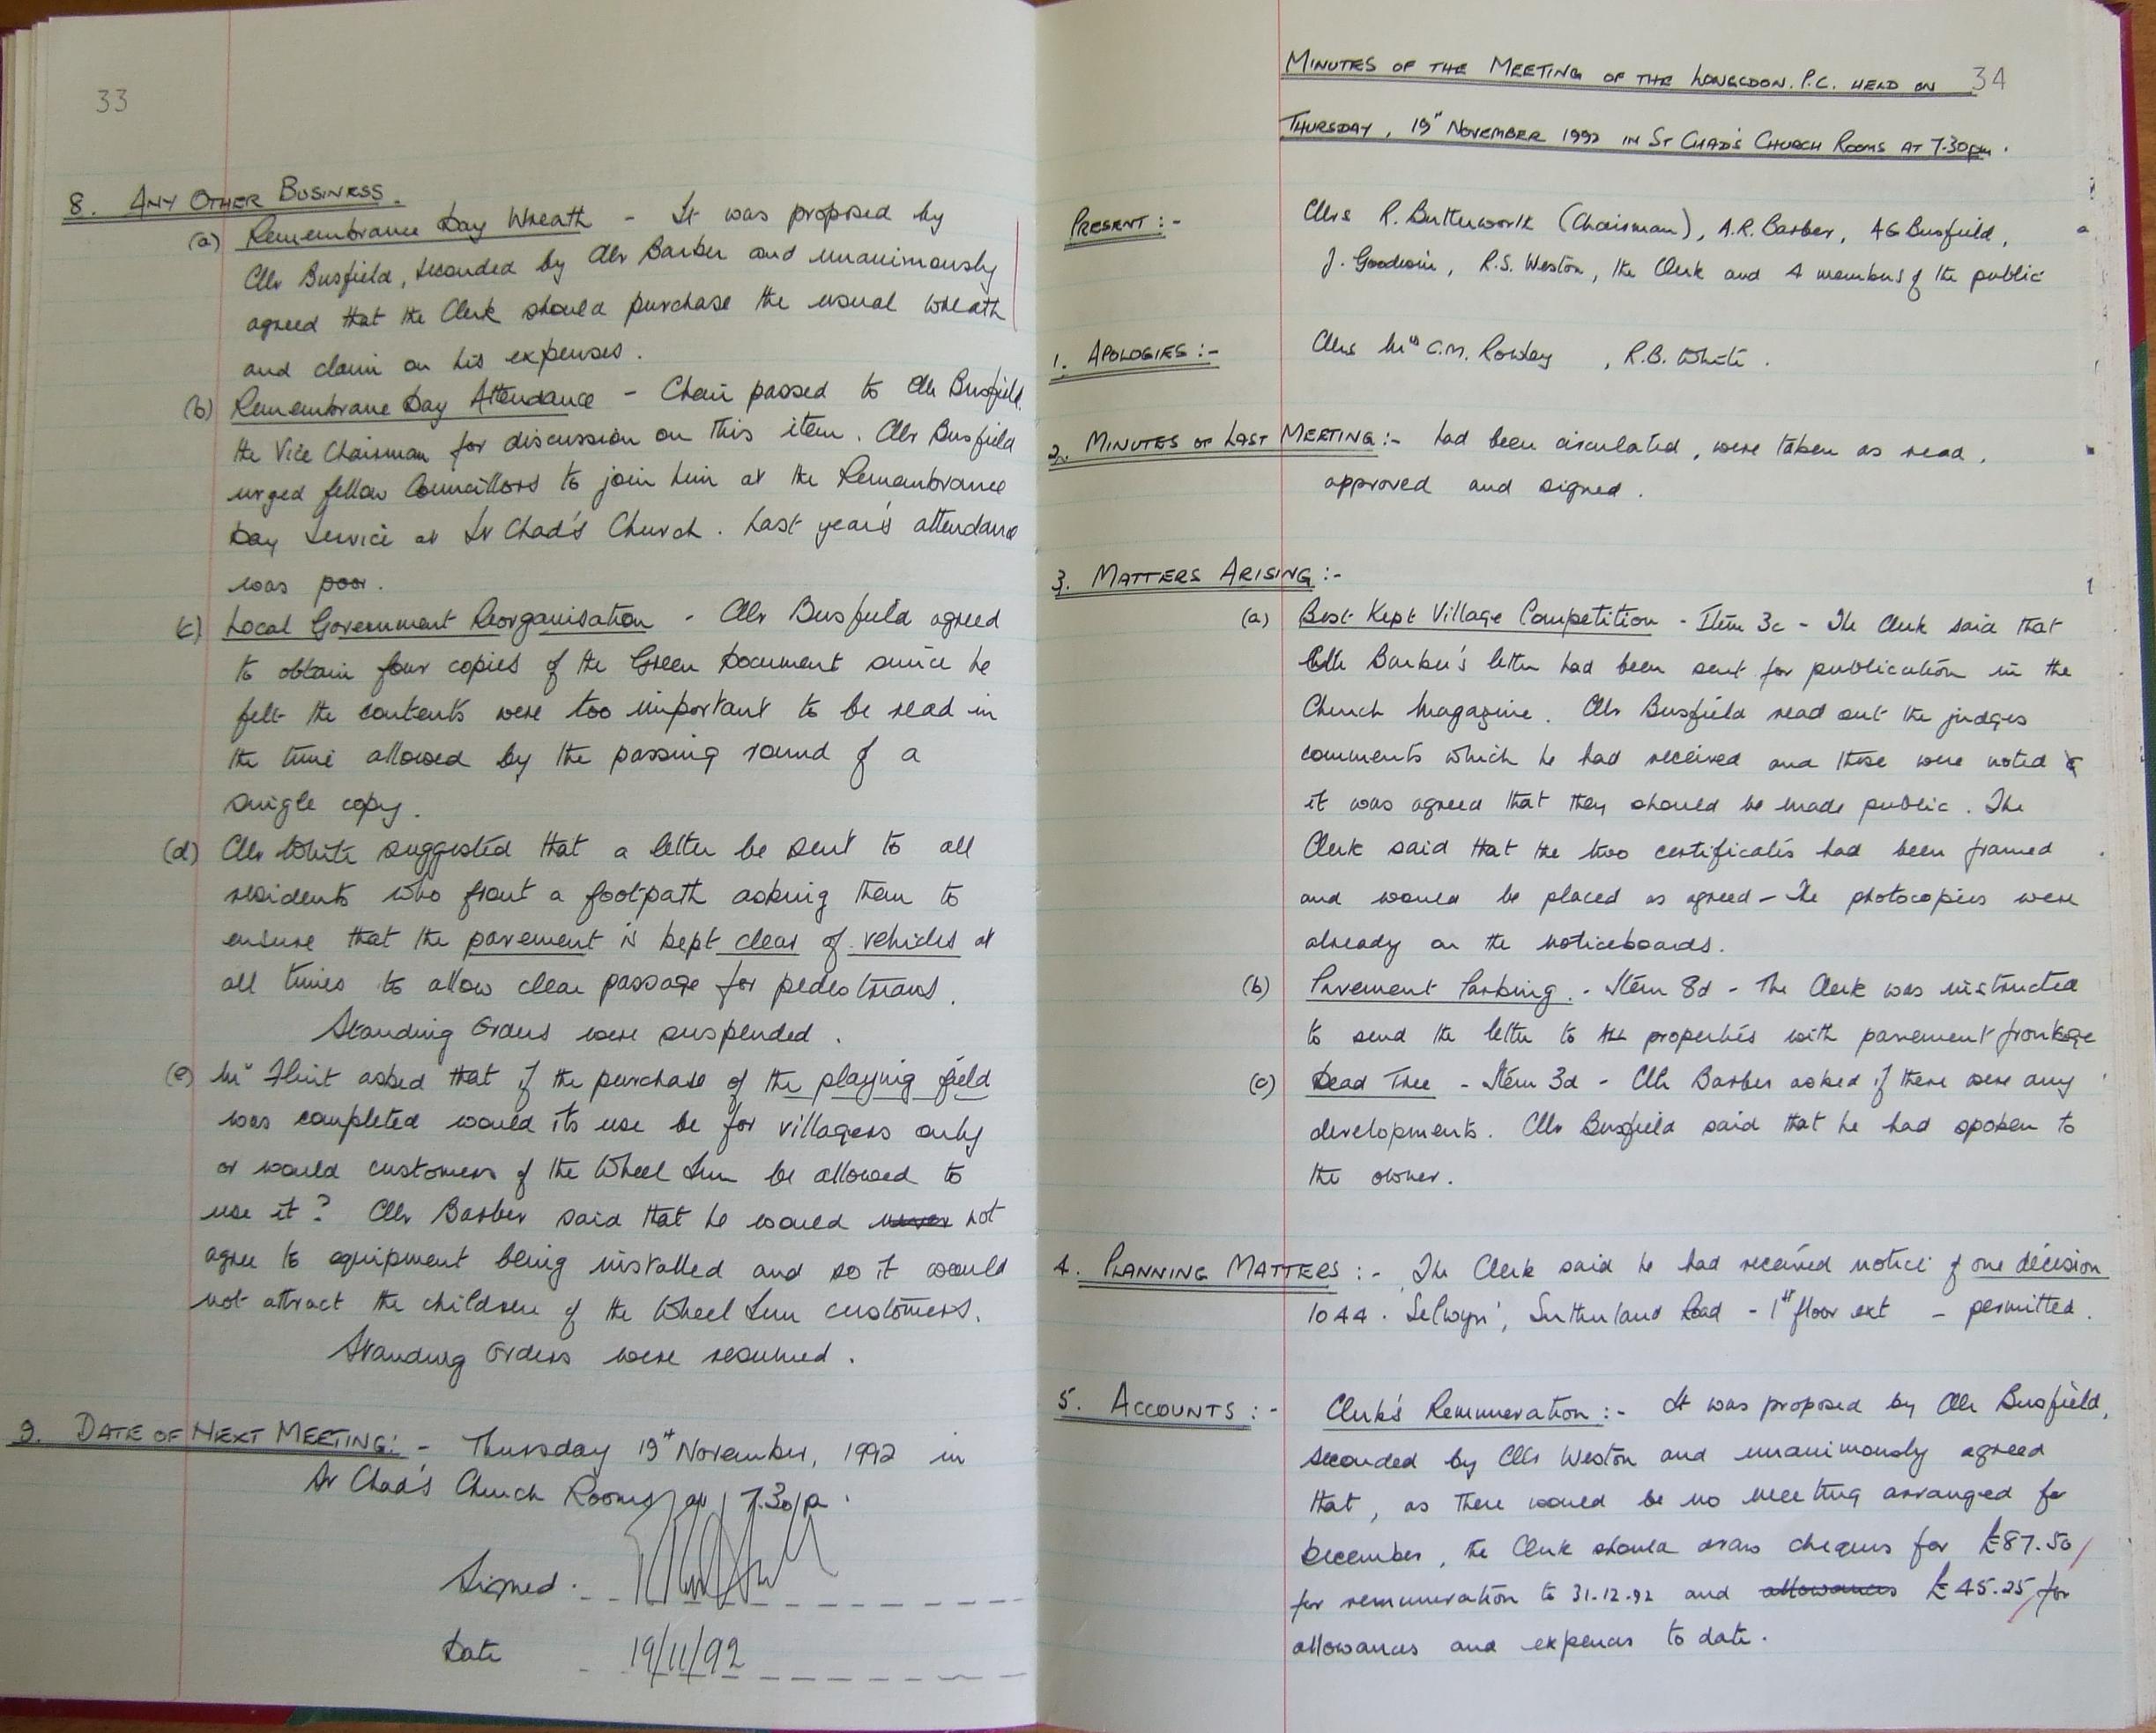 33
8. ANY OTHER BUSINESS.
(a) Remembrance Day Wreath - It was proposed by
Cllr Busfield, seconded by Cllr Barber and unanimously
agreed that the Clerk should purchase the usual wreath
and claim on his expenses.
(b) Remembrance Day Attendance - Chair passed to Cllr Busfield,
the Vice Chairman for discussion on this item. Cllr Busfield
urged fellow Councillors to join him at the Remembrance
Day Service at St Chad's Church. Last year's attendance
was poor.
(c) Local Government Reorganisation - Cllr Busfield agreed
to obtain four copies of the Green Document since he
felt the contents were too important to be read in
the time allowed by the passing round of a
single copy.
(d) Cllr White suggested that a letter be sent to all
residents who front a footpath asking them to
ensure that the pavement is kept clear of vehicles at
all times to allow clear passage for pedestrians.
Standing Orders were suspended.
(e) Mr Flint asked that if the purchase of the playing field
was completed would its use be for villagers only
or would customers of the Wheel Inn be allowed to
use it? Cllr Barber said that he would never not
agree to equipment being installed and so it would
not attract the children of the Wheel Inn customers.
Standing Orders were resumed.
9. DATE OF NEXT MEETING: - Thursday 19th November, 1992 in
St Chad's Church Rooms at 7.30p.
Signed.
Date 19/11/92
MINUTES OF THE MEETING OF THE LONGDON. P.C. HELD ON 34
THURSDAY, 19th NOVEMBER 1992 IN ST CHAD'S CHURCH ROOMS AT 7.30pm.
PRESENT :- Cllrs R. Butterworth (Chairman), A.R. Barber, AG Busfield,
J. Goodwin, R.S. Weston, the Clerk and 4 members of the public
1. APOLOGIES :- Cllrs Mrs C.M. Rowley, R.B. White.
2. MINUTES OF LAST MEETING :- had been circulated, were taken as read,
approved and signed.
3. MATTERS ARISING :-
(a) Best Kept Village Competition - Item 3c - The Clerk said that
Cllr Barber's letter had been sent for publication in the
Church Magazine. Cllr Busfield read out the judges
comments which he had received and these were noted &
it was agreed that they should be made public. The
Clerk said that the two certificates had been framed
and would be placed as agreed - The photocopies were
already on the noticeboards.
(b) Pavement Parking. - Item 8d - The Clerk was instructed
to send the letter to all properties with pavement frontage
(c) Dead Tree - Item 3d - Cllr Barber asked if there were any
developments. Cllr Busfield said that he had spoken to
the owner.
4. PLANNING MATTERS :- The Clerk said he had received notice of one decision
1044. 'Selwyn', Sutherland Road - 1st floor ext - permitted.
5. ACCOUNTS :- Clerk's Remuneration :- It was proposed by Cllr Busfield,
seconded by Cllr Weston and unanimously agreed
that, as there would be no meeting arranged for
December, the Clerk should draw cheques for £87.50
for remuneration to 31.12.92 and allowances £45.25 for
allowances and expenses to date.